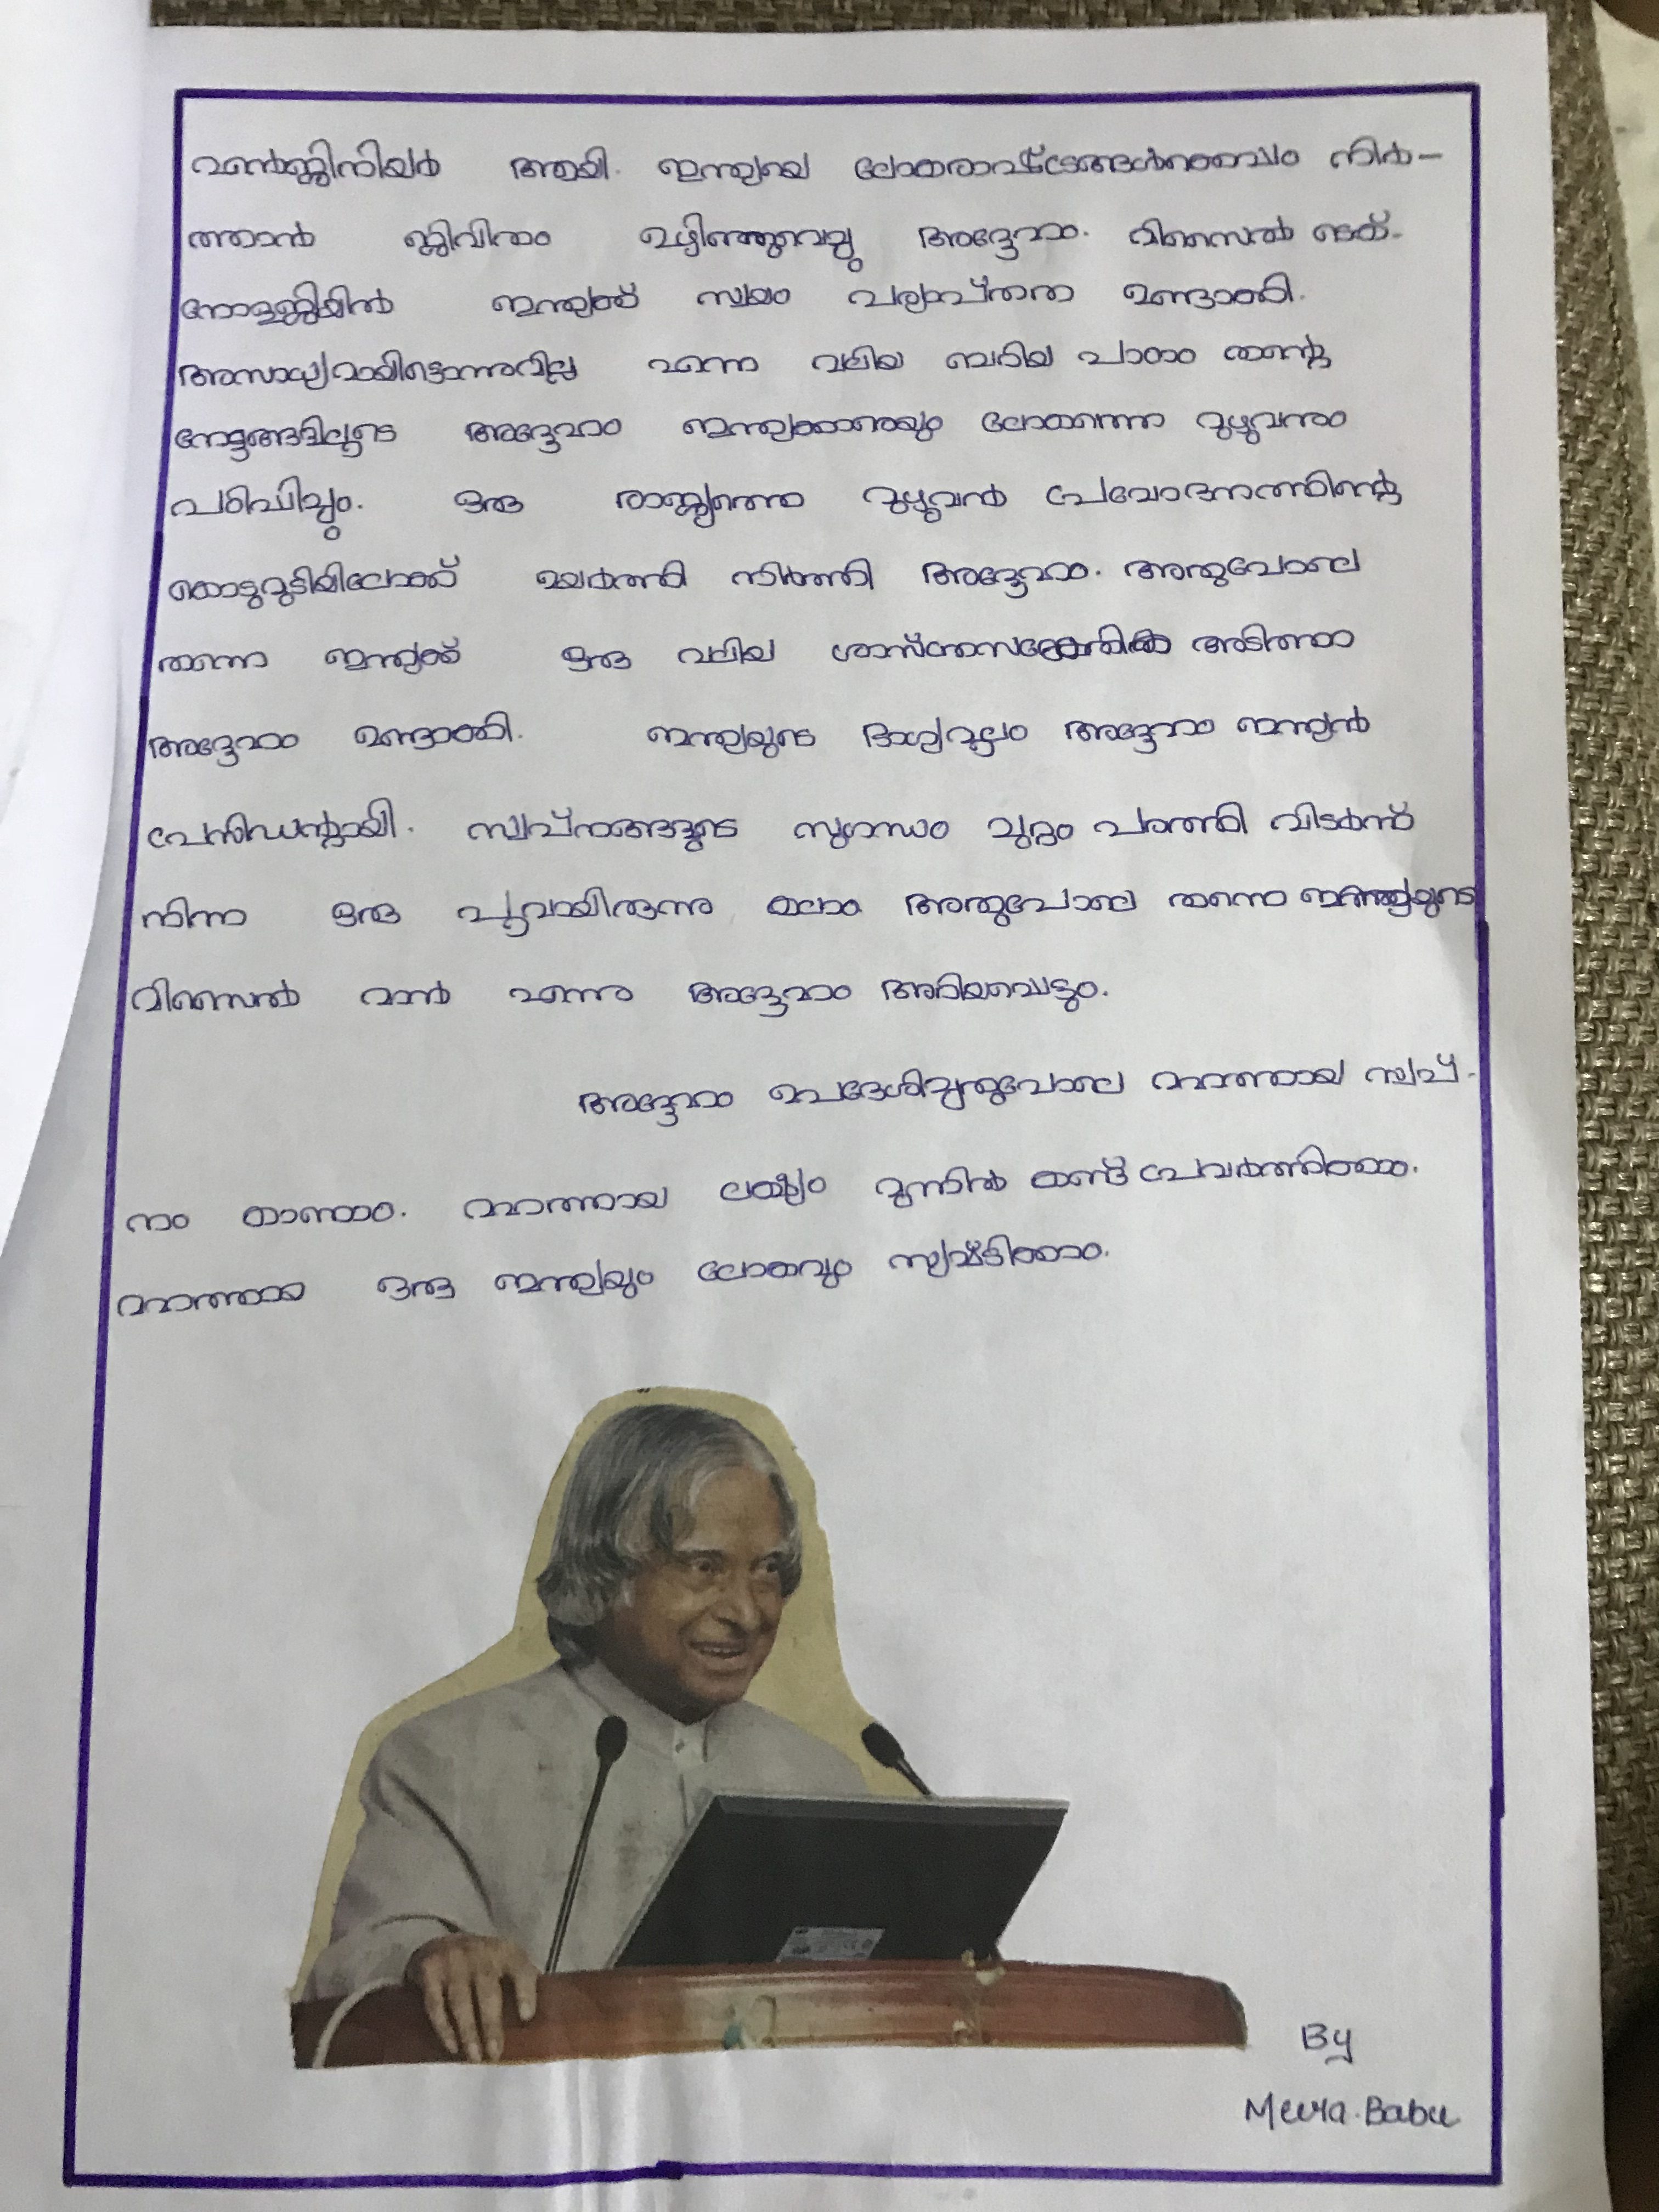 എൻജിനിയർ ആയി. ഇന്ത്യയെ ലോകരാഷ്ട്രങ്ങൾക്കൊപ്പം നിർ-
ത്താൻ ജീവിതം ഉഴിഞ്ഞുവെച്ചു അദ്ദേഹം. മിസൈൽ ടെക്-
നോളജിയിൽ ഇന്ത്യക്ക് സ്വയം പര്യാപ്തത ഉണ്ടാക്കി.
അസാധ്യമായിട്ടൊന്നുമില്ല എന്ന വലിയ ചെറിയ പാഠം തന്റെ
നേട്ടങ്ങളിലൂടെ അദ്ദേഹം ഇന്ത്യക്കാരെയും ലോകത്തെ മുഴുവനും
പഠിപ്പിച്ചു. ഒരു രാജ്യത്തെ മുഴുവൻ പ്രചോദനത്തിന്റെ
കൊടുമുടിയിലേക്ക് ഉയർത്തി നിർത്തി അദ്ദേഹം. അതുപോലെ
തന്നെ ഇന്ത്യക്ക് ഒരു വലിയ ശാസ്ത്രസാങ്കേതിക അടിത്തറ
അദ്ദേഹം ഉണ്ടാക്കി. ഇന്ത്യയുടെ ഭാഗ്യമൂലം അദ്ദേഹം ഇന്ത്യൻ
പ്രസിഡന്റായി. സ്വപ്നങ്ങളുടെ സുഗന്ധം ചുറ്റും പരത്തി വിടർന്ന്
നിന്ന ഒരു പൂവായിരുന്നു കലാം അതുപോലെ തന്നെ ഇന്ത്യയുടെ
മിസൈൽ മാൻ എന്നു അദ്ദേഹം അറിയപ്പെട്ടും.
അദ്ദേഹം ഉപദേശിച്ചതുപോലെ മഹത്തായ സ്വപ്-
നം കാണാം. മഹത്തായ ലക്ഷ്യം മുന്നിൽ കണ്ട് പ്രവർത്തിക്കാം.
മഹത്തായ ഒരു ഇന്ത്യയും ലോകവും സൃഷ്ടിക്കാം.
By
Meera.Babu